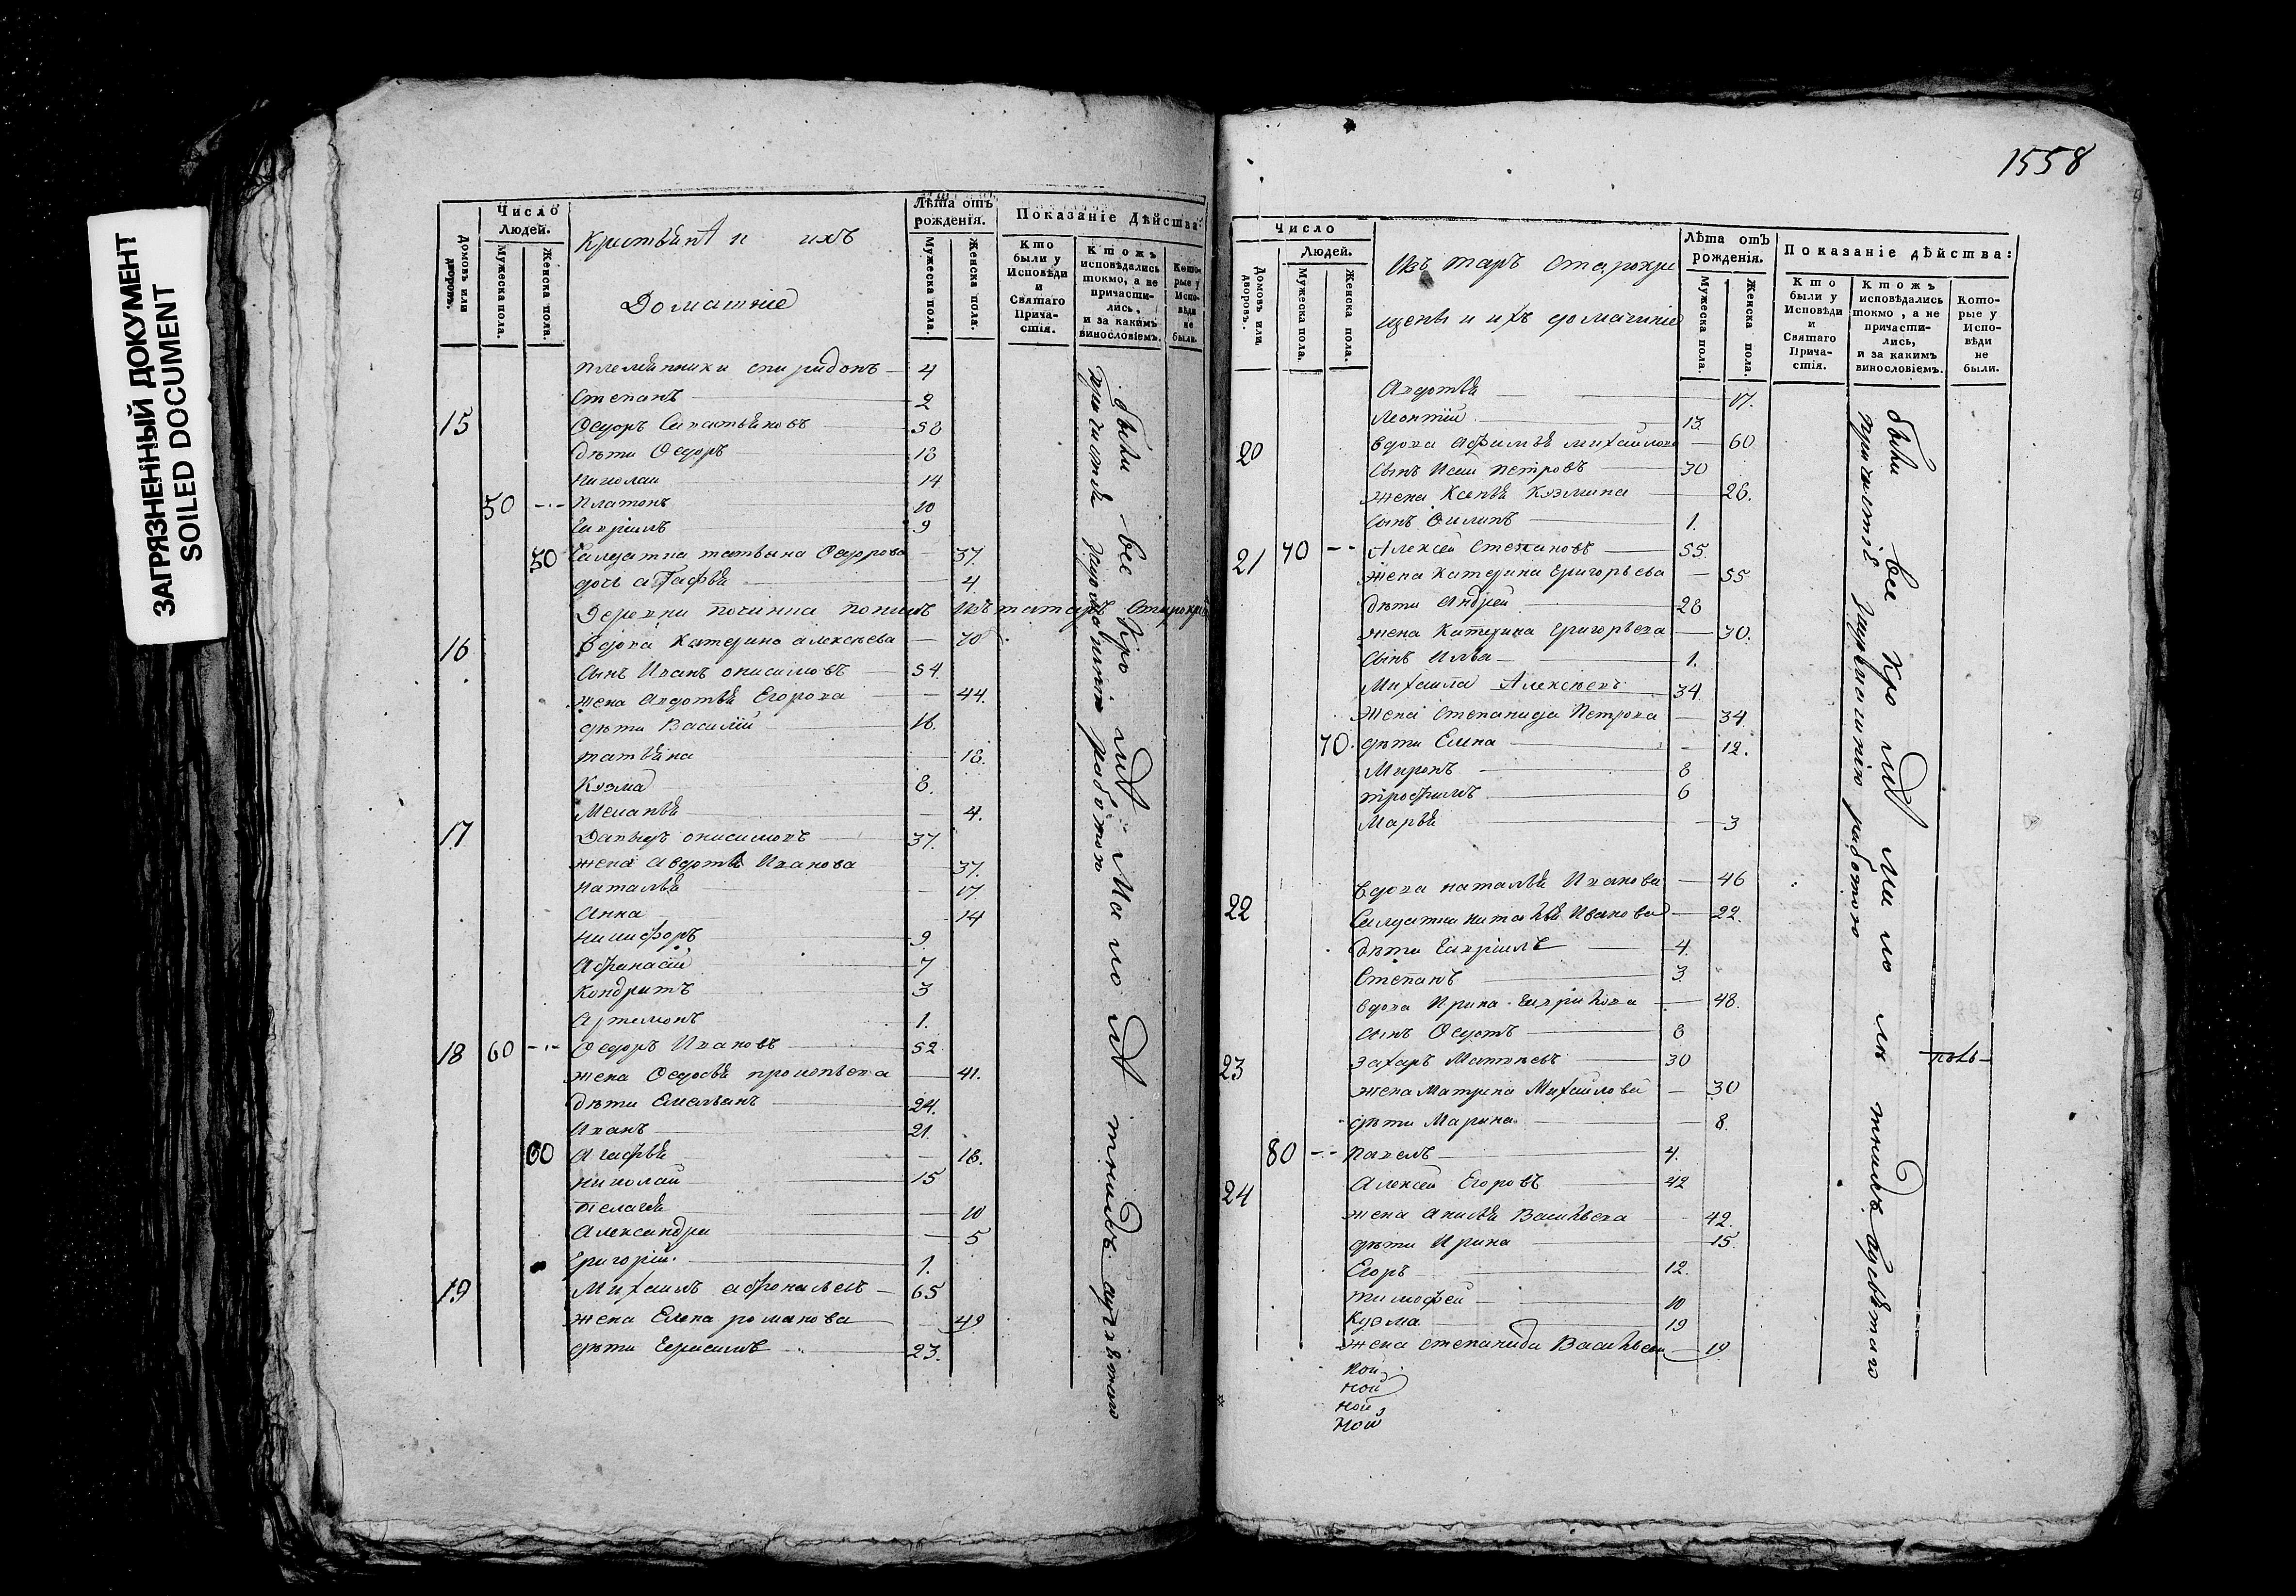 ЗАГРЯЗНЕННЫЙ ДОКУМЕНТ
SOILED DOCUMENT
Домовъ или дворовъ.
Число Людей.
Мужеска пола.
Женска пола.
Кристьянѣ и ихъ
Домашнiе
Лѣта отъ рожденiя.
Мужеска пола.
Женска пола.
Показанiе Дѣйства:
Кто были у Исповѣди и Святаго Прича-стiя.
Ктожъ исповѣдались токмо, а не причасти-лись, и за какимъ винословiемъ.
Кото-рые у Испо-вѣди не были.
племянники спиридонъ 4
Степанъ 2
15 Ѳедоръ 58
дѣти Ѳедоръ 18
Николай 14
50 Платонъ 10
Гаврiилъ 9
50 Салдатка татьяна Ѳедорова 37
дочь агафья 4
Деревни починка изъ татаръ Старокре
16 Вдова Катерина алексѣева 70
Сынъ Иванъ онисимовъ 54.
жена авдотья Егорова 44.
дѣти Василiй 16.
татьяна 18.
Кузма 8.
Меланья 4.
17 Давыдъ онисимовъ 37.
жена авдотья Иванова 37.
наталья 17
Анна 14
никифоръ 9
Афанасiй 7
Кондратъ 3
Артемонъ 1.
18 60 Ѳедоръ Ивановъ 52
жена Ѳедосья прокопьева 41.
дѣти Емельянъ 24.
Иванъ 21.
60 Агафья 18.
николай 15
пелагея 10
Александра 5
Григорiй 1.
19 Михаилъ афонасьевъ 65
жена Елена романова 49
дѣти Герасимъ 23.
были все кро
причастiя работою
1558
Число Людей.
Домовъ или дворовъ.
Мужеска пола.
Женска пола.
Изъ татаръ Старокре
щены и ихъ домашнiе
Лѣта отъ рожденiя.
Мужеска пола.
Женска пола.
Показанiе дѣйства:
Кто были у Исповѣди и Святаго Прича-стiя.
Ктожъ исповѣдались токмо, а не причасти-лись, и за какимъ винословiемъ.
Кото-рые у Испо-вѣди не были.
Авдотья 17.
Леонтiй 13
20 Вдова Афимья михайлова 60
Сынъ петровъ 30
жена Ксенья Кузмина 26.
Сынъ Филипъ 1.
21 70 Алексѣй Степановъ 55.
жена Катерина григорьева 55
дѣти Андрей 28
жена Катерина григорьева 30.
Сынъ Илья 1.
Михаила Алексѣевъ 34
Жена Степанида Петрова 34.
70 дѣти Елена 12.
Миронъ 8
трофимъ 6
Марья 3
22 Вдова наталья Иванова 46
Салдатка наталья Иванова 22.
дѣти Гаврiилъ 4.
Степанъ 3.
вдова Ирина Гаврилова 48.
Сынъ Ѳедотъ 8
23 Захаръ Матвѣевъ 30
жена Матрена Михайлова 30
дѣти Марина 8.
80 Павелъ 4.
24 Алексѣй Егоровъ 42
жена Васильева 42.
дѣти Ирина 15
Егоръ 12.
тимофей 10
Кузма 19
жена степанида Васильева 19.
были все кро
причастiя работою